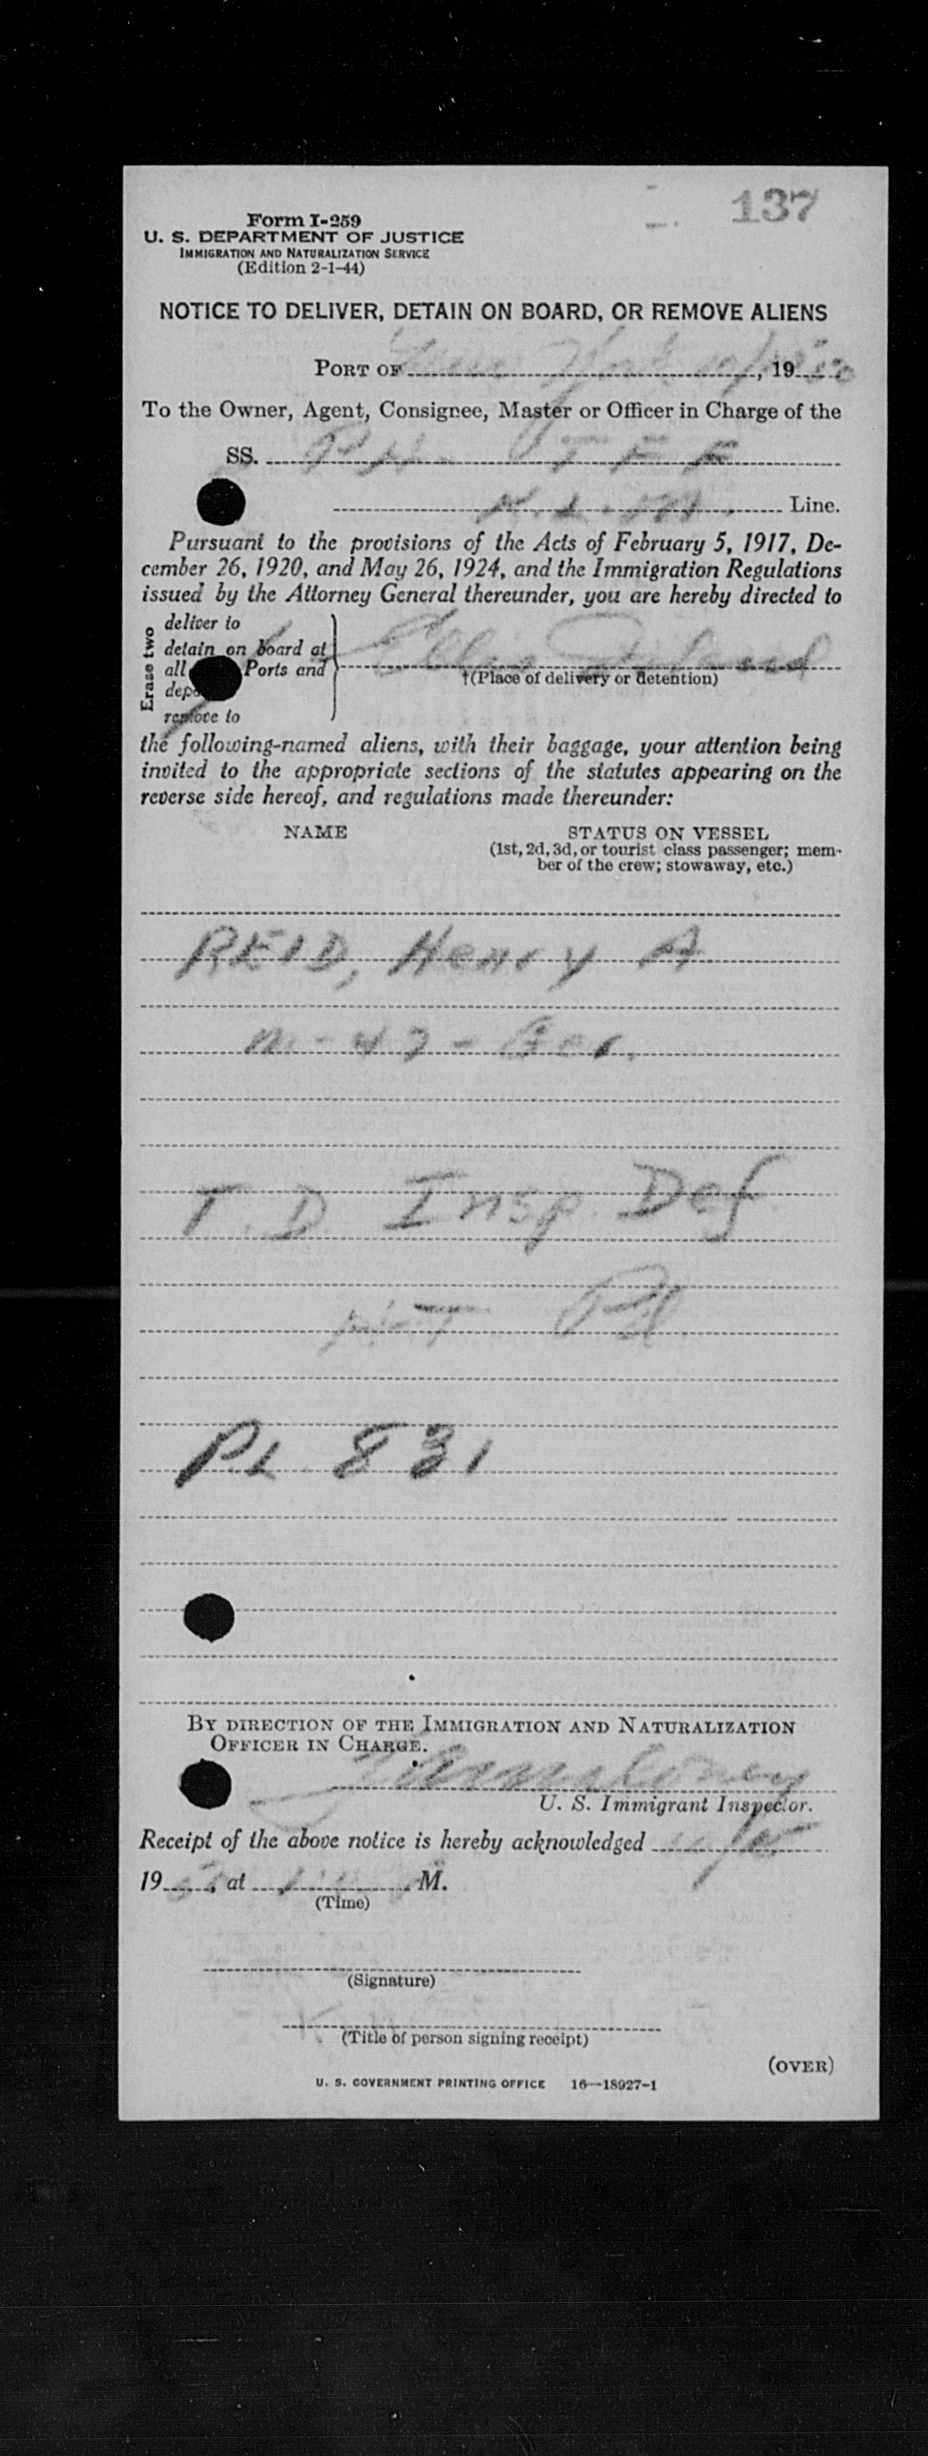 137
Form I-259
U. S. DEPARTMENT OF JUSTICE
IMMIGRATION AND NATURALIZATION SERVICE
(Edition 2-1-44)
NOTICE TO DELIVER, DETAIN ON BOARD, OR REMOVE ALIENS
PORT OF New York, 19
To the Owner, Agent, Consignee, Master or Officer in Charge of the
SS. PH. TFF
K.L.M. Line.
Pursuant to the provisions of the Acts of February 5, 1917, De-
cember 26, 1920, and May 26, 1924, and the Immigration Regulations
issued by the Attorney General thereunder, you are hereby directed to
Erase two
deliver to
detain on board at
all Ports and
remove to
Ellis Island
†(Place of delivery or detention)
the following-named aliens, with their baggage, your attention being
invited to the appropriate sections of the statutes appearing on the
reverse side hereof, and regulations made thereunder:
NAME STATUS ON VESSEL
(1st, 2d, 3d, or tourist class passenger; mem-
ber of the crew; stowaway, etc.)
REID, Henry A
m - 47 - Ger.
T. D. Insp. Def
PL 831
BY DIRECTION OF THE IMMIGRATION AND NATURALIZATION
OFFICER IN CHARGE.
U. S. Immigrant Inspector.
Receipt of the above notice is hereby acknowledged
19 , at M.
(Time)
(Signature)
(Title of person signing receipt)
(OVER)
U. S. GOVERNMENT PRINTING OFFICE 16—18927-1